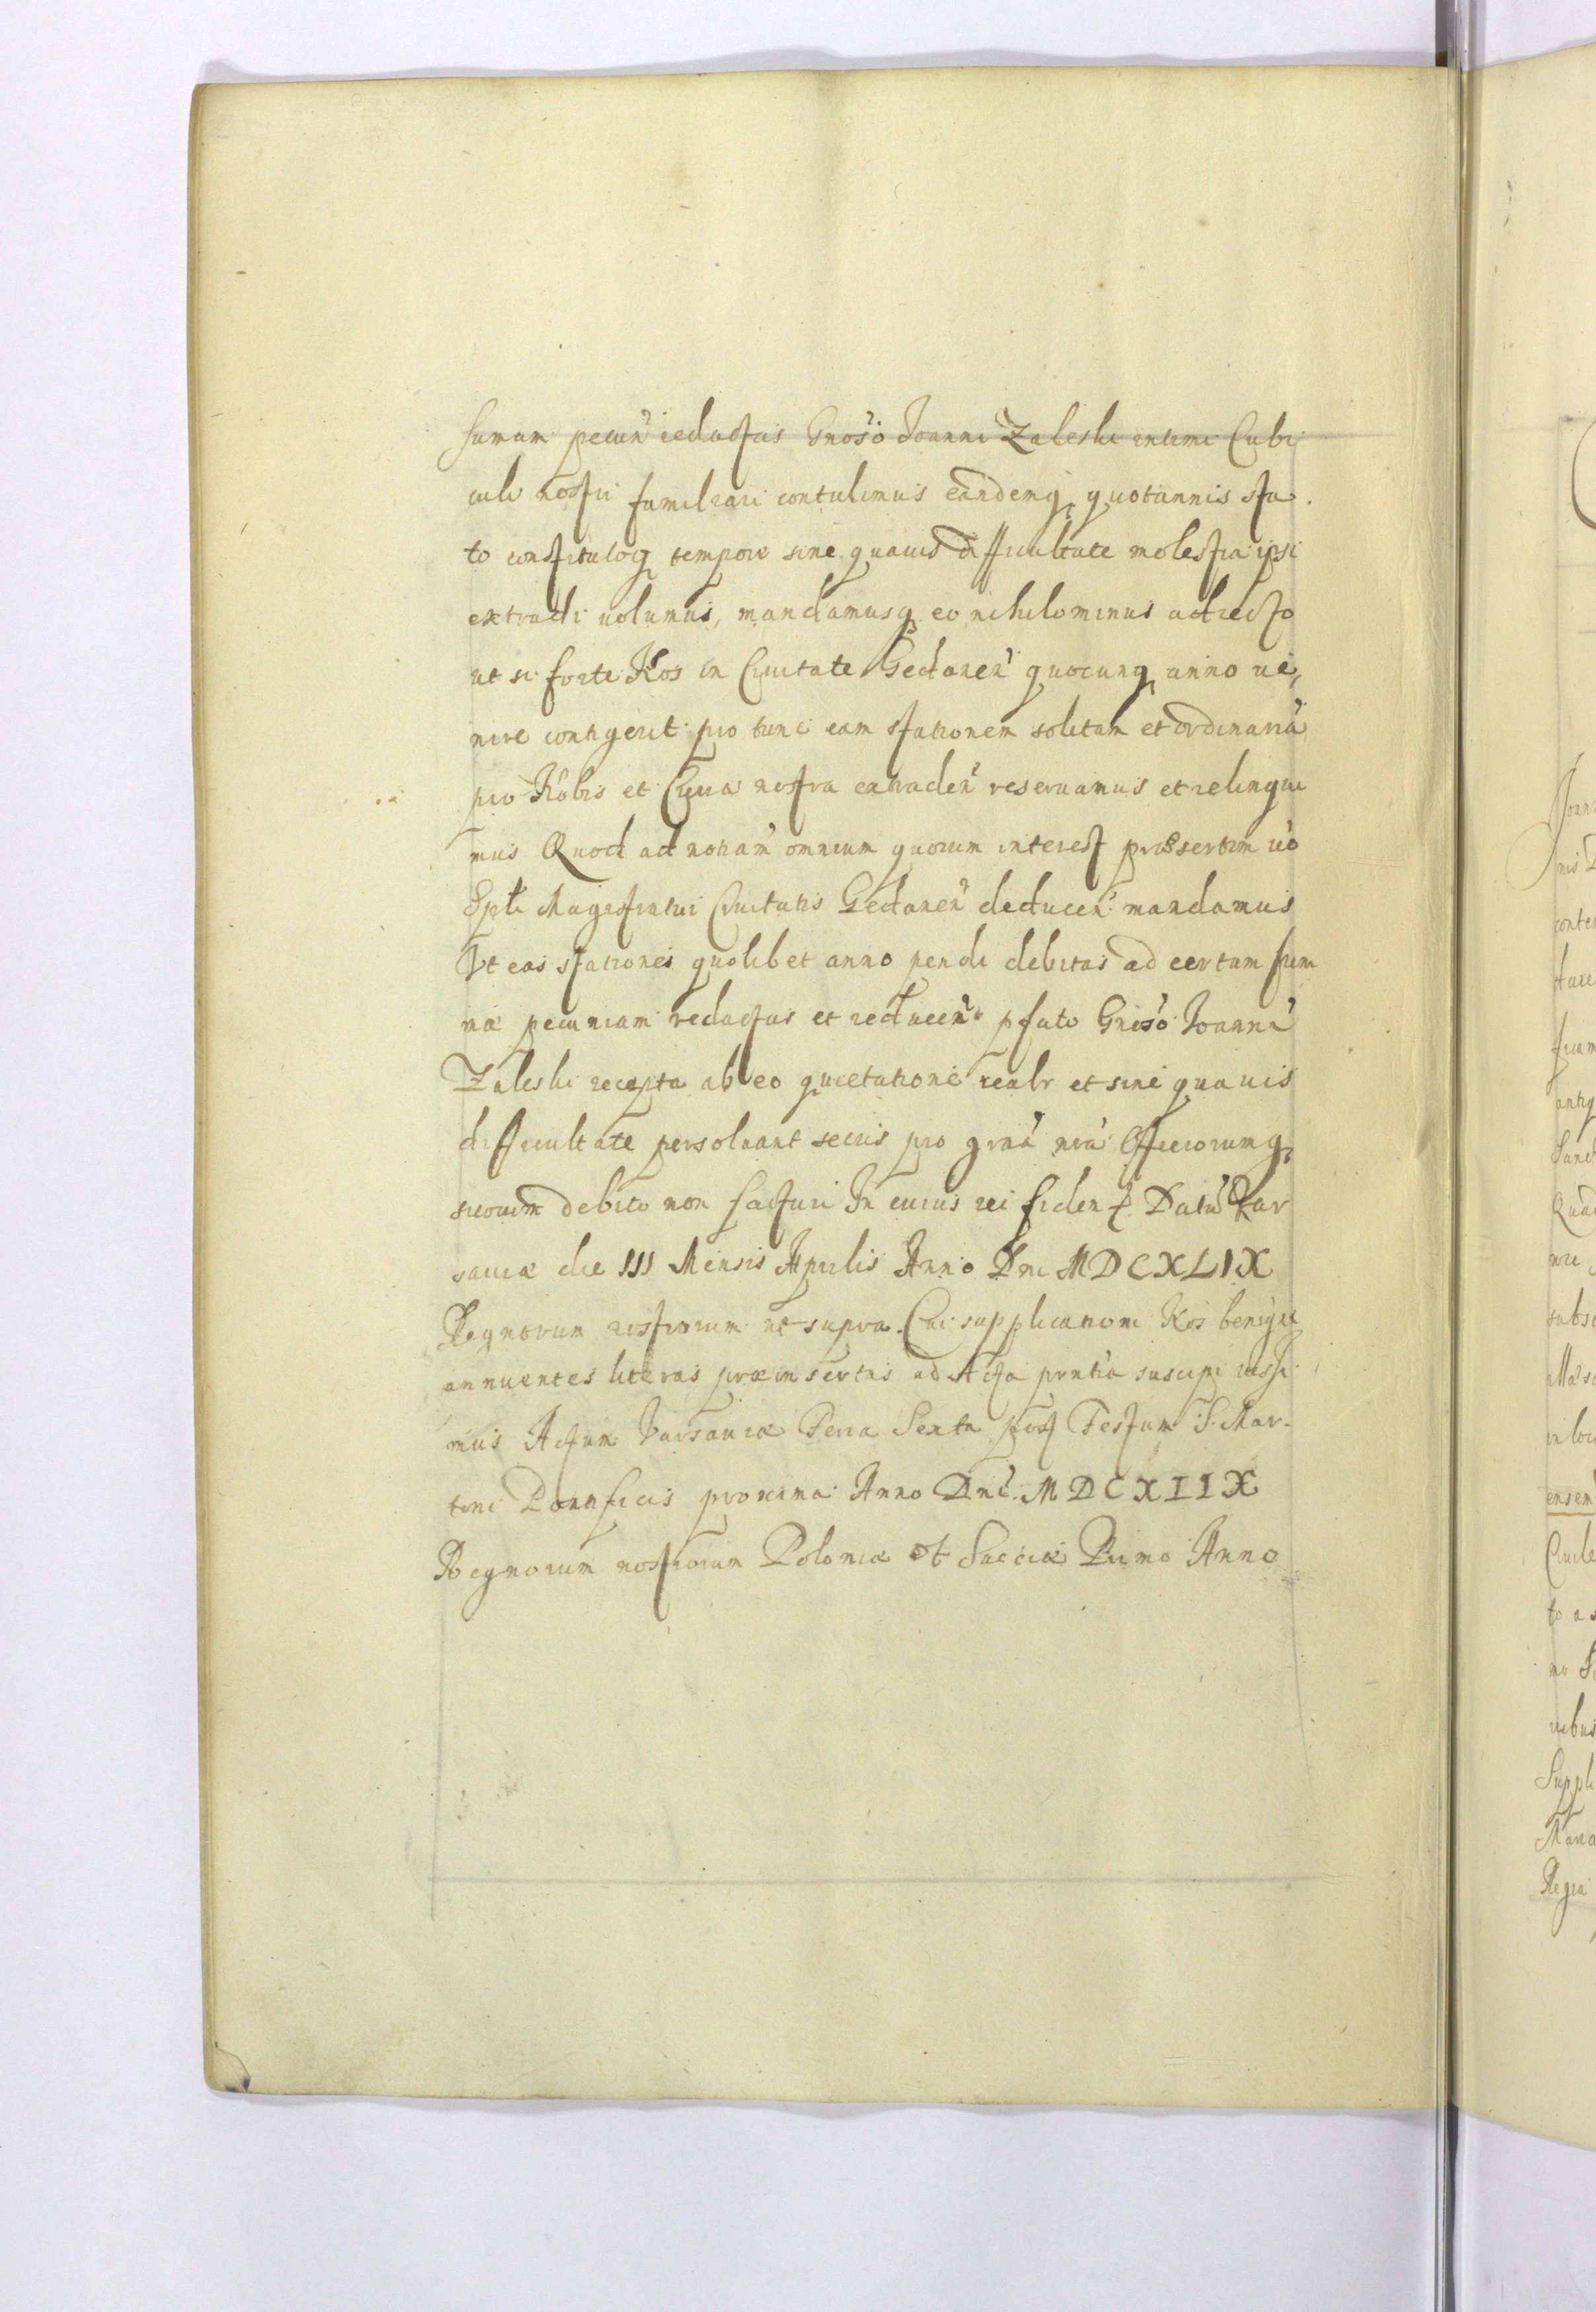 sumam pecun̄ redactas Gnoso Joanni Zaleski intimi Cubi
culi nostri familiari contulimus eandemq quotannis sta
to constitutoq tempore sine quauis difficultate molestia ipsi
extradi uolumus, mandamusq eo nihilominus adiecto
ut si forte Nos in Ciuitate Gedanen̄ quocunq anno ue,
nire contigerit pro tunc eam stationem solitam et ordinariā
pro Nobis et Curia nostra extraden̄ reseruamus et relinqui
mus Quod ad notiam omnium quorum interest præsertim uo
Sptli Magistratui Ciuitatis Gedanen̄ deducen̄ mandamus
Vt eas stationes quolibet anno pendi debitas ad certam sum
mā pecuniam redactas et reducen̄ pfato Gnoso Joanni
Zaleski recepta ab eo quietatione realr et sine quauis
difficultate persoluant secus pro grā nrā Officiorumq
suorum debito non facturi In cuius rei fidem Datū Var
sauiæ die III Mensis Aprilis Anno Dni MDCXLIX
Regnorum nostrorum ut supra. Cui supplicationi Nos benigne
annuentes literas præinsertas ad Acta prntia suscipi iussi
mus Actum Varsauiæ Feria Sexta post Festum S. Mar-
tini Pontificis proxima Anno Dni MDCXLIX
Regnorum nostrorum Poloniæ et Sueciæ Primo Anno